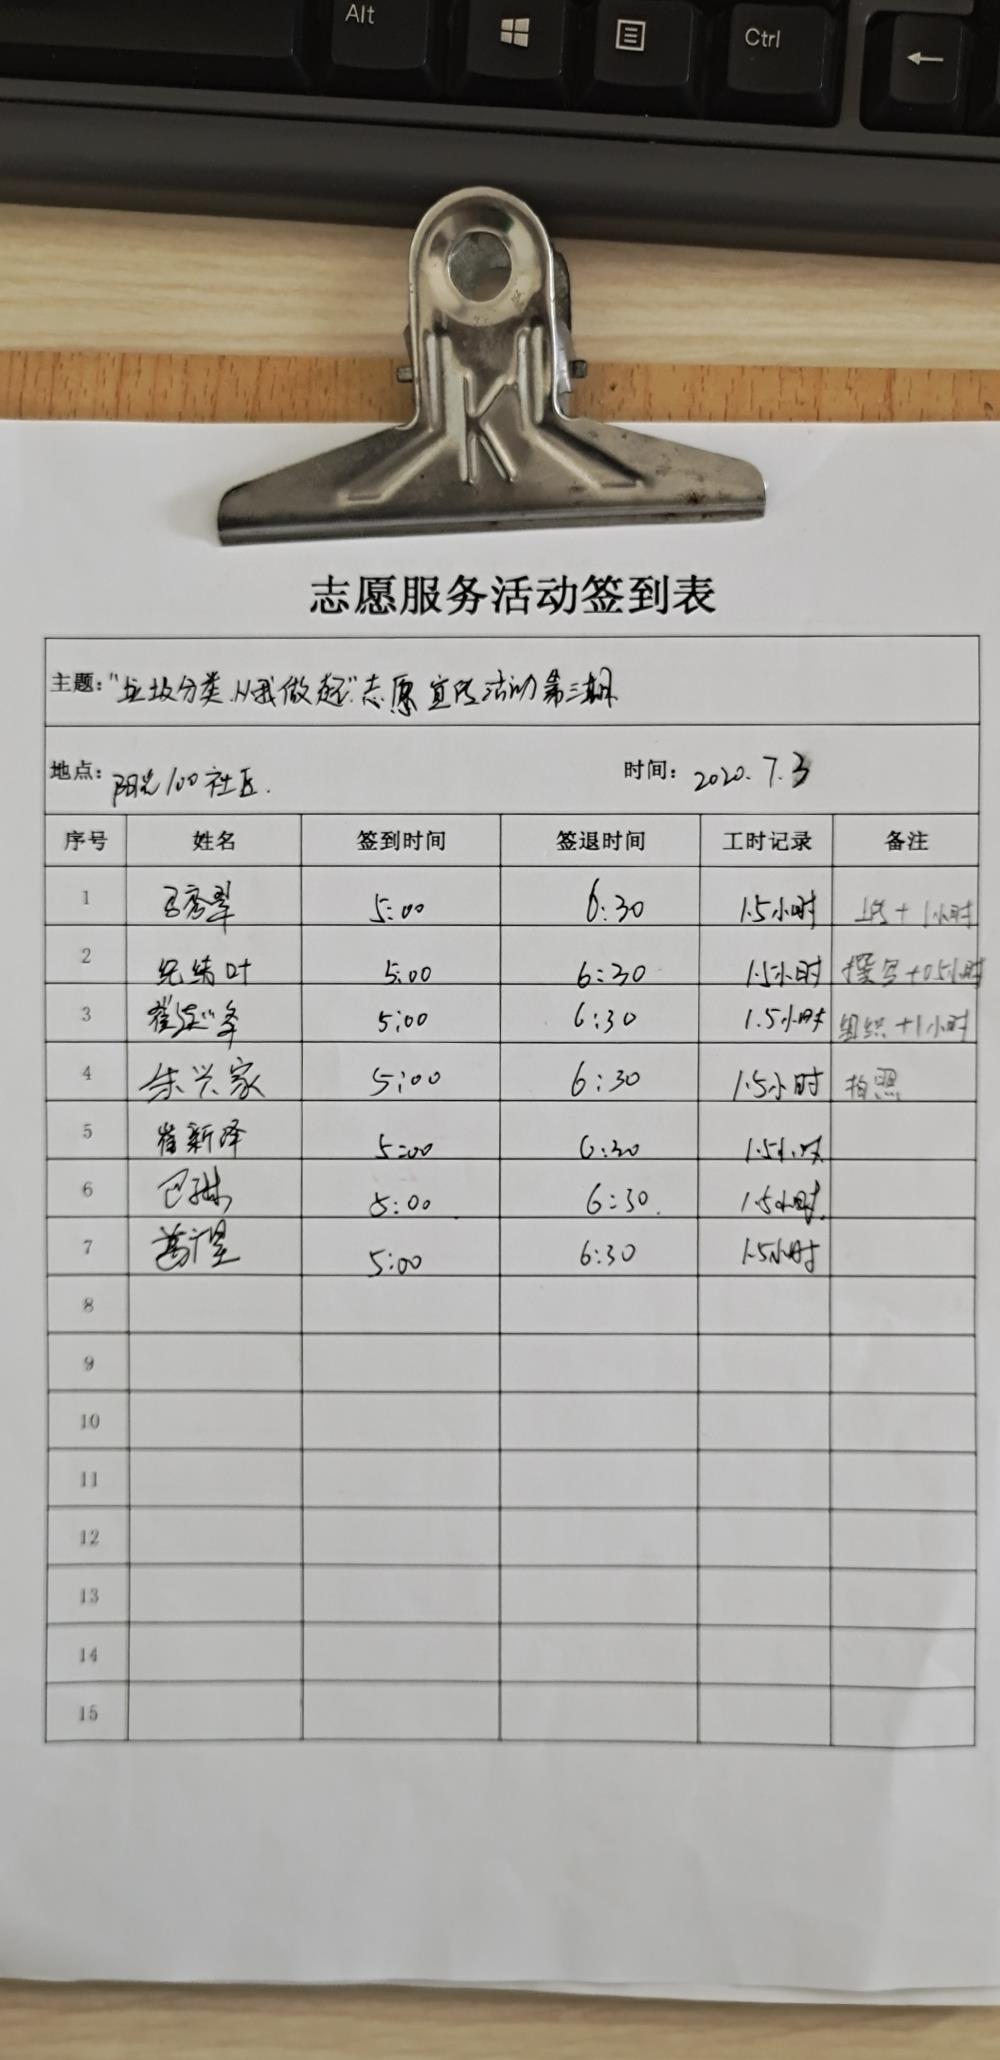 Alt
Ctrl
←
K
志愿服务活动签到表
主题："垃圾分类,从我做起"志愿宣传活动第三期
地点：阳光100社区. 时间：2020.7.3
序号 姓名 签到时间 签退时间 工时记录 备注
1 5:00 6:30 1.5小时 +1小时
2 5:00 6:30 1.5小时 撰写+0.5小时
3 5:00 6:30 1.5小时 组织+1小时
4 朱兴家 5:00 6:30 1.5小时 拍照
5 崔新泽 5:00 6:30 1.5小时
6 巴琳 5:00 6:30. 1.5小时.
7 5:00 6:30 1.5小时
8
9
10
11
12
13
14
15